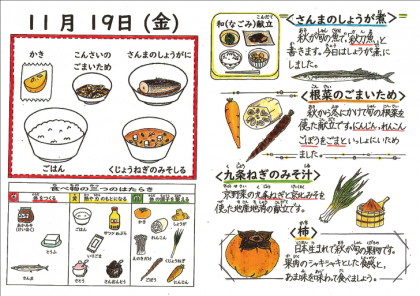 11月 19日(金)
かき
こんさいの
ごまいため
さんまのしょうがに
ごはん
くじょうねぎのみそしる
食べ物の三つのはたらき
さんま
ごはん
さとう
ごま
れんこん
にんじん
和(なごみ)献立
こんだて
<さんまのしょうが煮>
秋が旬の魚で、"秋刀魚"と
書きます。今日はしょうが煮に
しました。
<根菜のごまいため>
秋から冬にかけて旬の根菜を
使った献立です。にんじん、れんこん
ごぼうをごまといっしょにいため
ました。
<九条ねぎのみそ汁>
京野菜の九条ねぎと京北みそを
使った地産地消の献立です。
<柿>
日本生まれで秋が旬の果物です。
果肉のシャキシャキとした食感と、
あま味を味わって食べましょう。